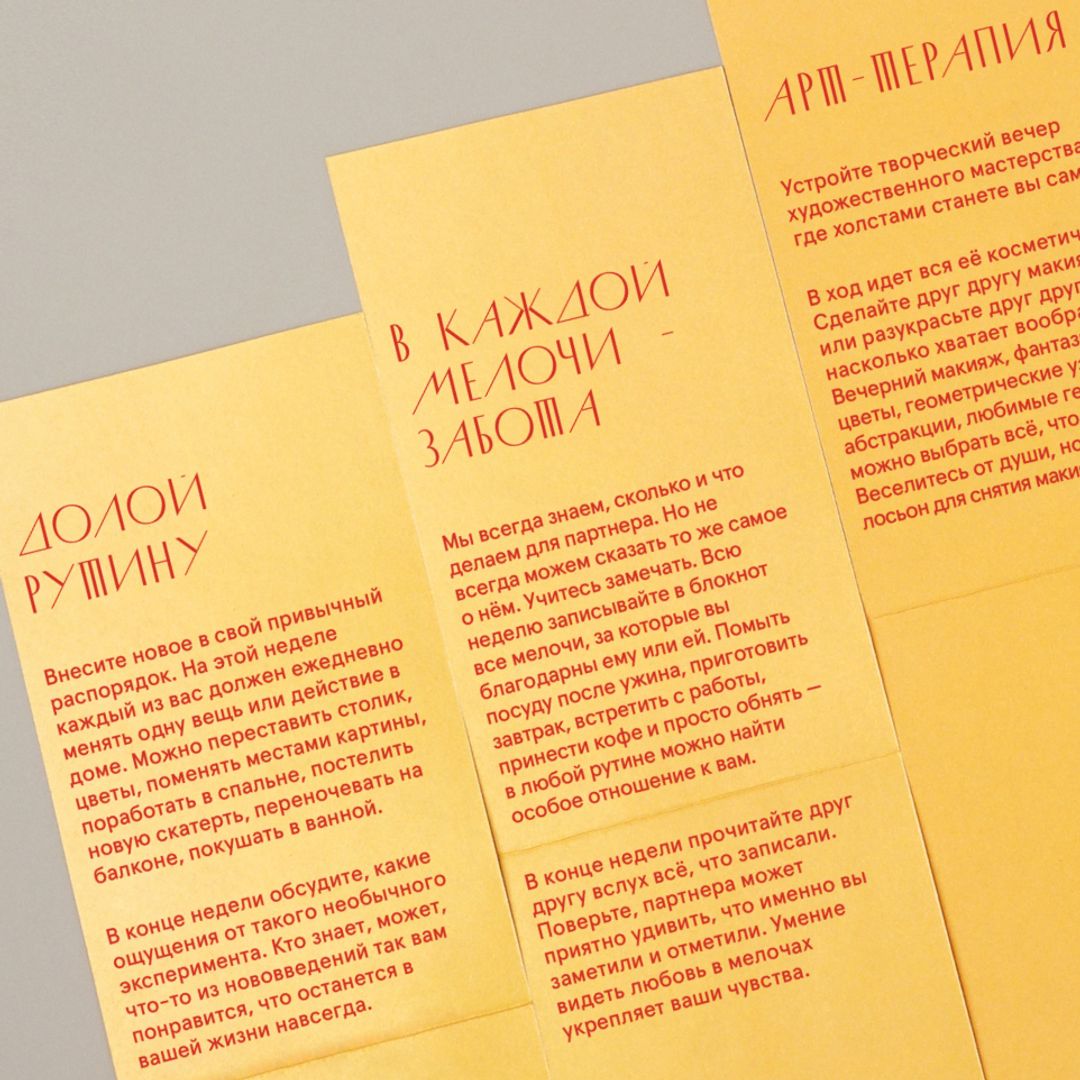 ДОЛОЙ
РУТИНУ
Внесите новое в свой привычный
распорядок. На этой неделе
каждый из вас должен ежедневно
менять одну вещь или действие в
доме. Можно переставить столик,
цветы, поменять местами картины,
поработать в спальне, постелить
новую скатерть, переночевать на
балконе, покушать в ванной.
В конце недели обсудите, какие
ощущения от такого необычного
эксперимента. Кто знает, может,
что-то из нововведений так вам
понравится, что останется в
вашей жизни навсегда.
В КАЖДОЙ
МЕЛОЧИ -
ЗАБОТА
Мы всегда знаем, сколько и что
делаем для партнера. Но не
всегда можем сказать то же самое
о нём. Учитесь замечать. Всю
неделю записывайте в блокнот
все мелочи, за которые вы
благодарны ему или ей. Помыть
посуду после ужина, приготовить
завтрак, встретить с работы,
принести кофе и просто обнять —
в любой рутине можно найти
особое отношение к вам.
В конце недели прочитайте друг
другу вслух всё, что записали.
Поверьте, партнера может
приятно удивить, что именно вы
заметили и отметили. Умение
видеть любовь в мелочах
укрепляет ваши чувства.
АРТ-ТЕРАПИЯ
Устройте творческий вечер
художественного мастерства
где холстами станете вы сам
В ход идет вся её космети
Сделайте друг другу макия
или разукрасьте друг друг
насколько хватает вообра
Вечерний макияж, фантаз
цветы, геометрические у
абстракции, любимые ге
можно выбрать всё, что
Веселитесь от души, но
лосьон для снятия маки